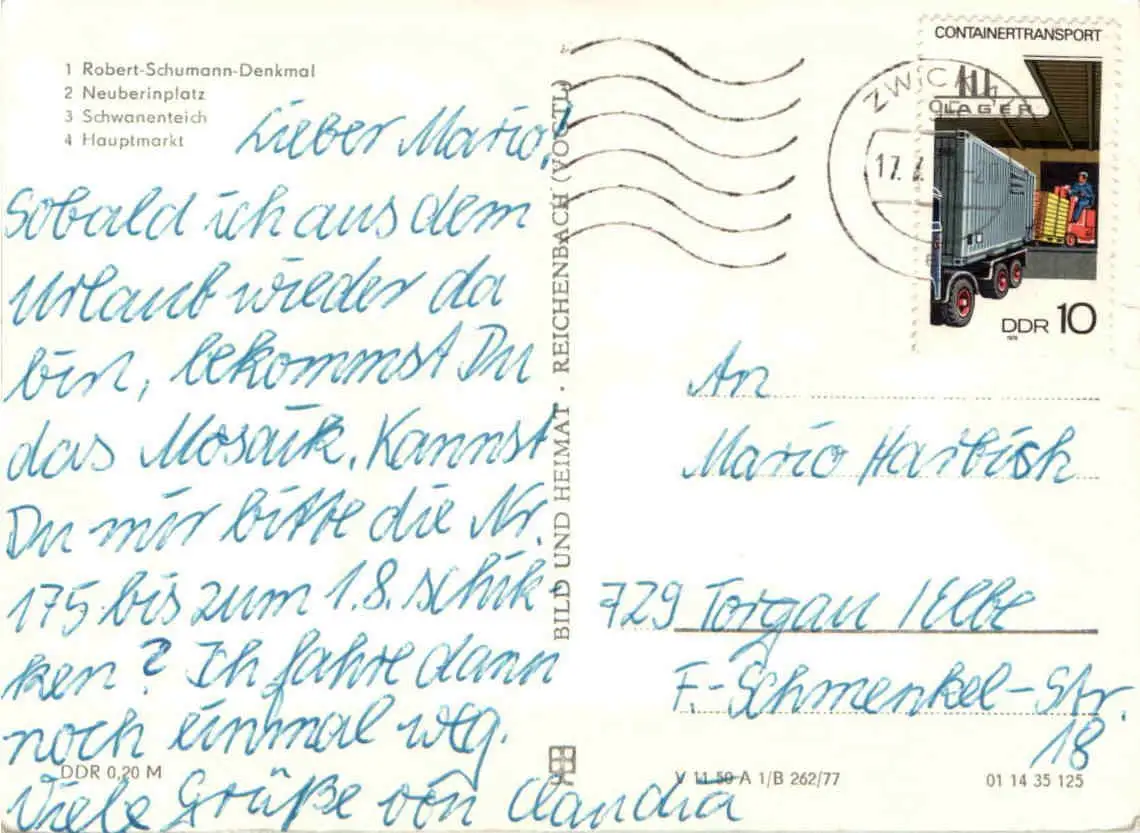 1 Robert-Schumann-Denkmal
2 Neuberinplatz
3 Schwanenteich
4 Hauptmarkt
Lieber Mario!
Sobald ich aus dem
Urlaub wieder da
bin, bekommst Du
das Mosaik. Kannst
Du mir bitte die Nr.
175 bis zum 1.8. schik-
ken? Ich fahre dann
noch einmal weg.
Viele Grüße von Claudia
DDR 0,20 M
BILD UND HEIMAT · REICHENBACH (VOGTL)
CONTAINERTRANSPORT
LAGER
DDR 10
ZWICK
17.
An
Mario Harbich
729 Torgau/Elbe
F.-Schmenkel-Str.
18
V 11 50 A 1/B 262/77
01 14 35 125